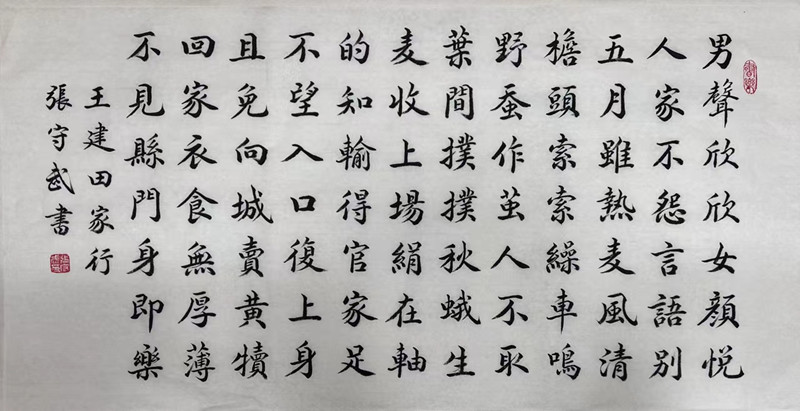 男聲欣欣女顏悅
人家不怨言語別
五月雖熱麦風清
檐頭索索繰車鳴
野蚕作茧人不取
葉間撲撲秋蛾生
麦收上場絹在軸
的知輸得官家足
不望入口復上身
且免向城賣黃犢
回家衣食無厚薄
不見縣門身即樂
王建田家行
張守武書